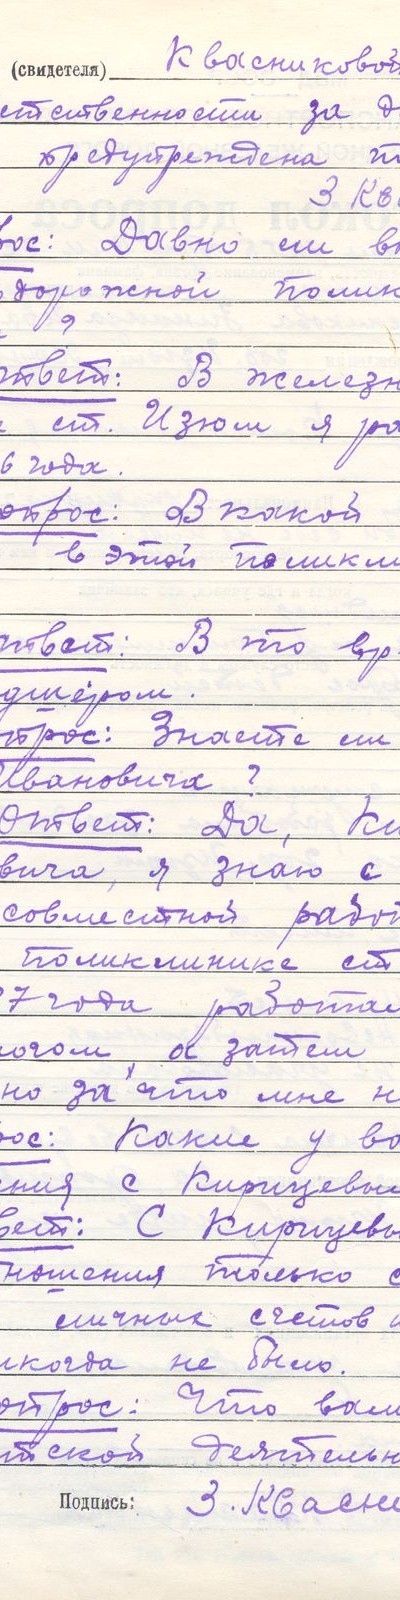 (свидетеля) Квасниковой
етственности за д
предупреждена
З. Ква
рос: Давно ли вы
дорожной полик
?
твет: В железн
ст. Изюм я ра
6 года.
опрос: В какой
в этой поликли
твет: В это вр
дшером.
прос: Знаете ли
Ивановича ?
Ответ: Да, Ки
вича, я знаю с
совместной работ
поликлинике ст
37 года работал
логом, а затем
но за что мне н
рос: Какие у ва
ения с Кирицевым
вет: С Кирицевы
тношения только с
личных счетов
икогда не было.
опрос: Что вам
тской деятельн
Подпись: З. Квасни